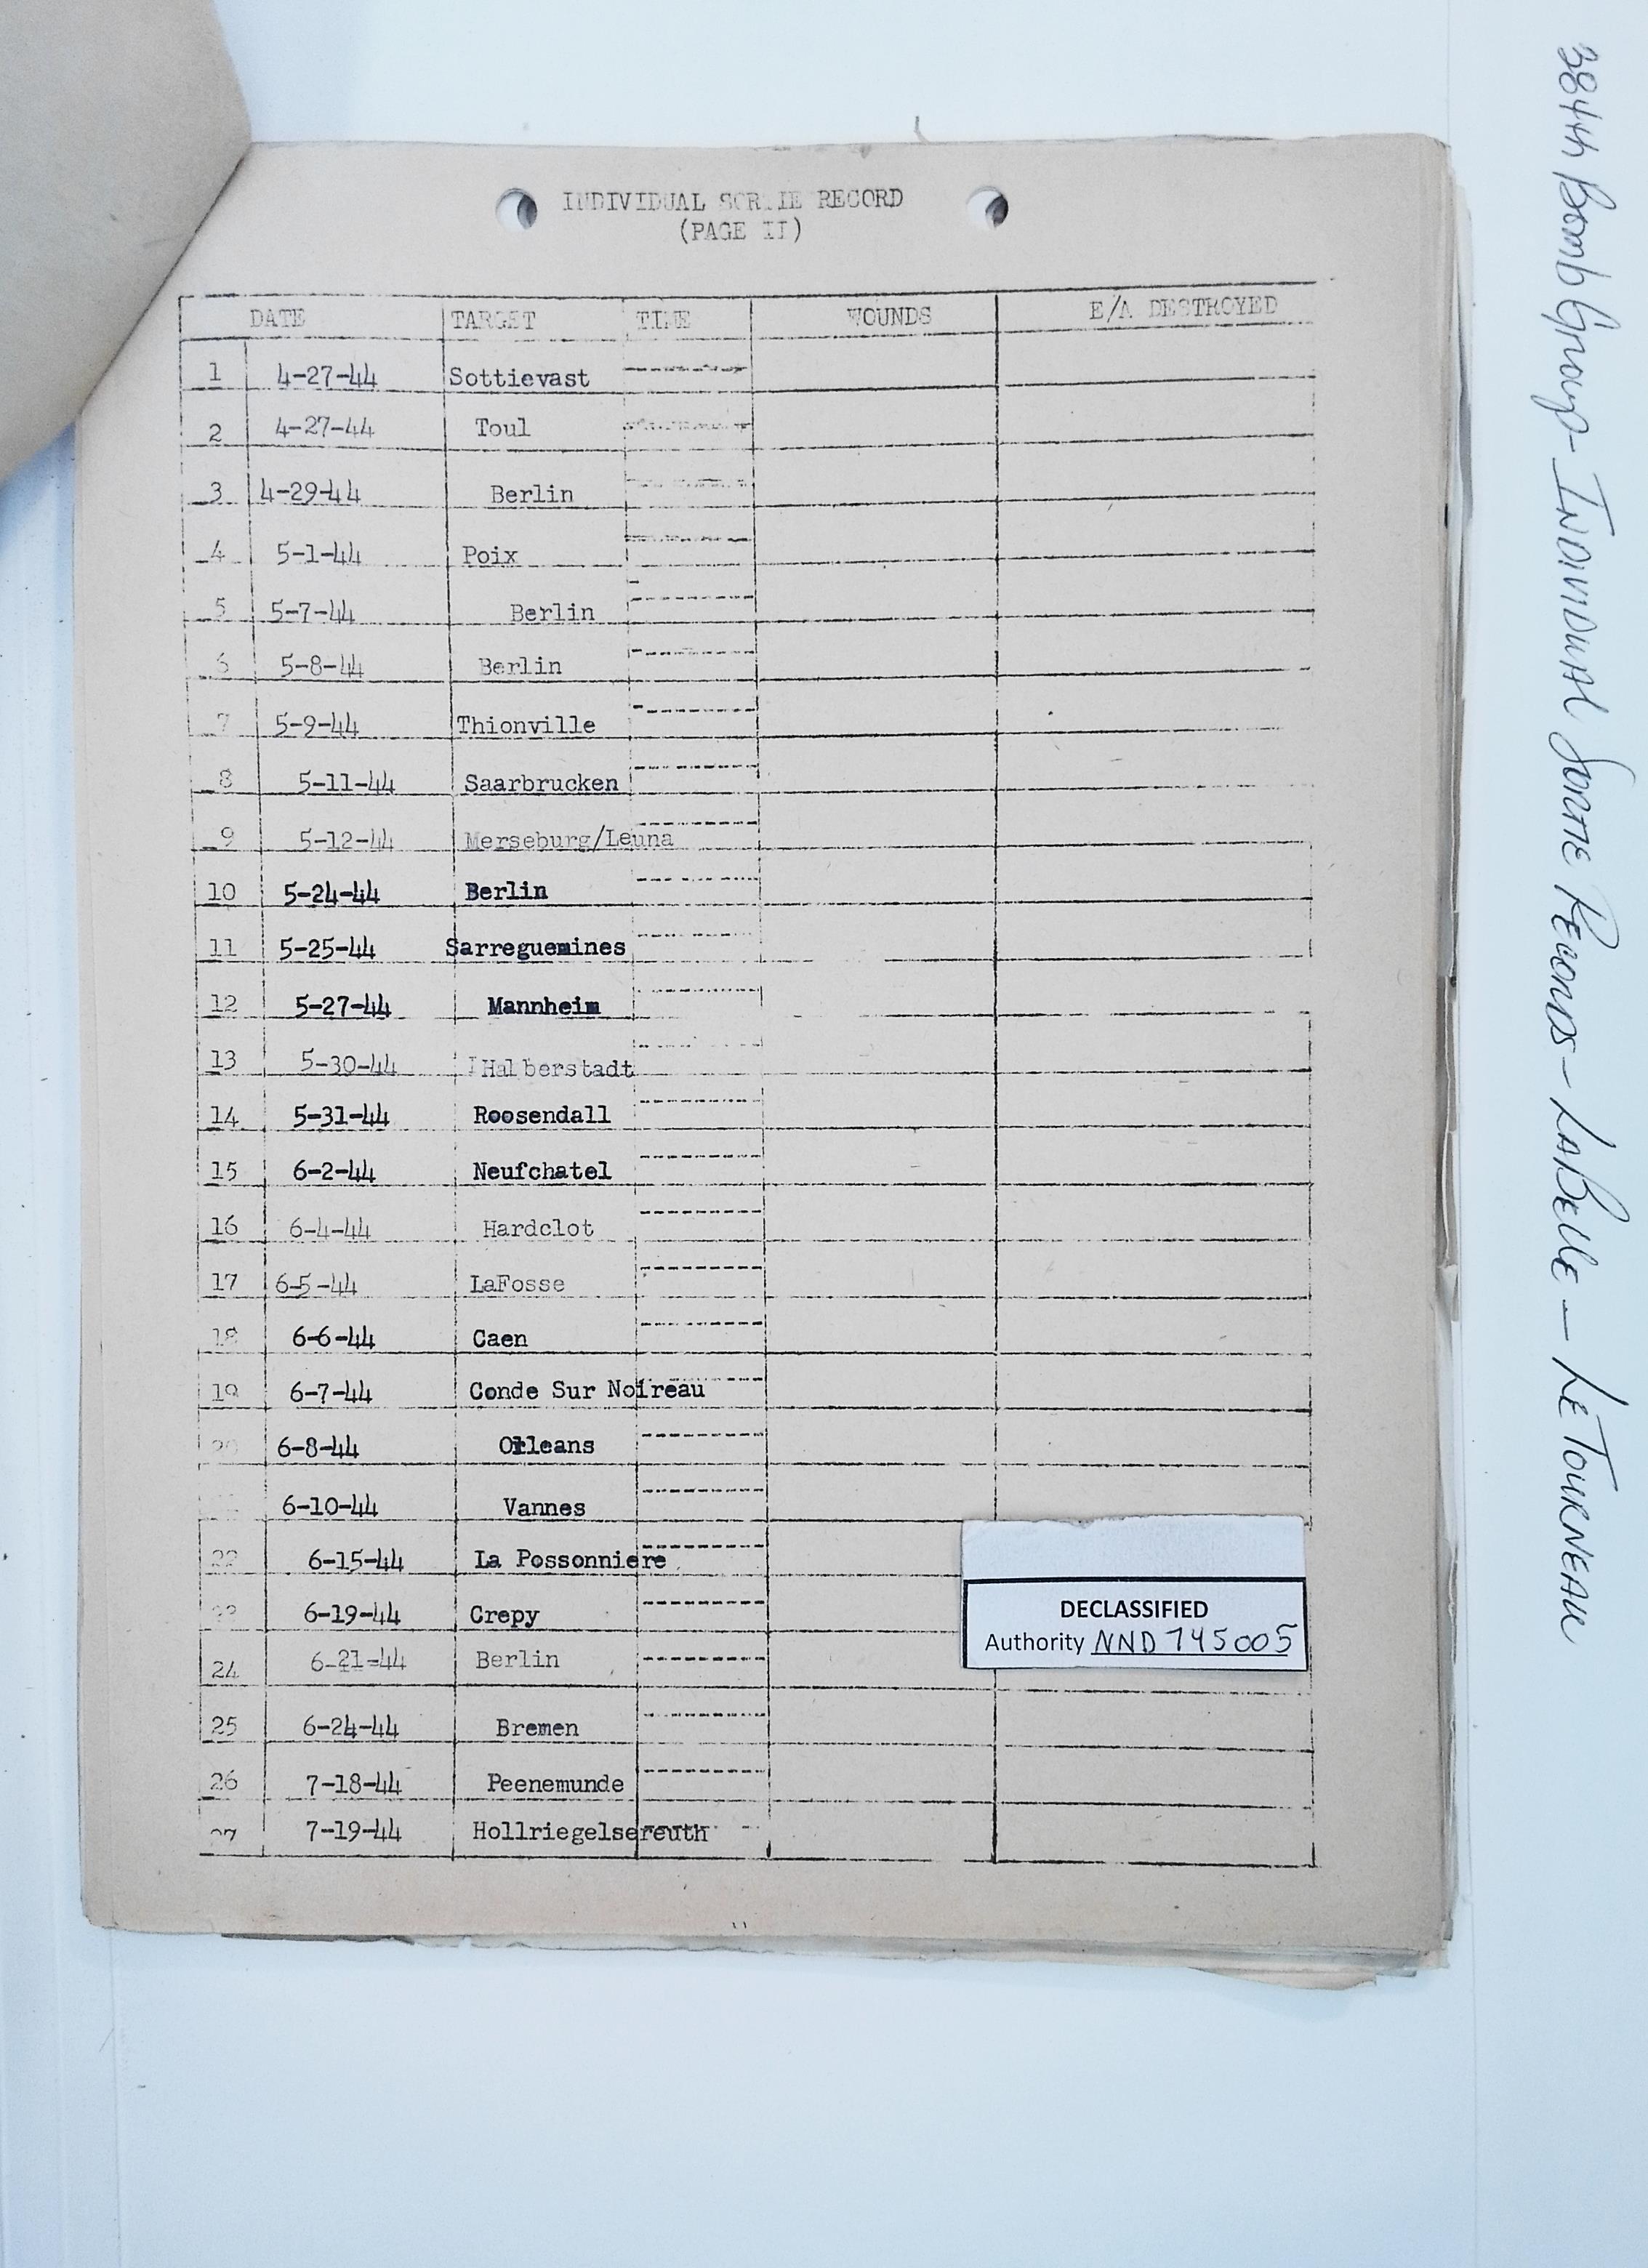 INDIVIDUAL SORTIE RECORD
(PAGE II)
DATE TARGET TIME WOUNDS E/A DESTROYED
1 4-27-44 Sottievast
2 4-27-44 Toul
3 4-29-44 Berlin
4 5-1-44 Poix
5 5-7-44 Berlin
6 5-8-44 Berlin
7 5-9-44 Thionville
8 5-11-44 Saarbrucken
9 5-12-44 Merseburg/Leuna
10 5-24-44 Berlin
11 5-25-44 Sarreguemines
12 5-27-44 Mannheim
13 5-30-44 Halberstadt
14 5-31-44 Roosendall
15 6-2-44 Neufchatel
16 6-4-44 Hardclot
17 6-5-44 LaFosse
18 6-6-44 Caen
19 6-7-44 Conde Sur Noireau
20 6-8-44 Orleans
6-10-44 Vannes
22 6-15-44 La Possonniere
23 6-19-44 Crepy
24 6-21-44 Berlin
25 6-24-44 Bremen
26 7-18-44 Peenemunde
27 7-19-44 Hollriegelsereuth
DECLASSIFIED
Authority NND 745005
384th Bomb Group - Individual Sortie Records - LaBelle - LeTourneau